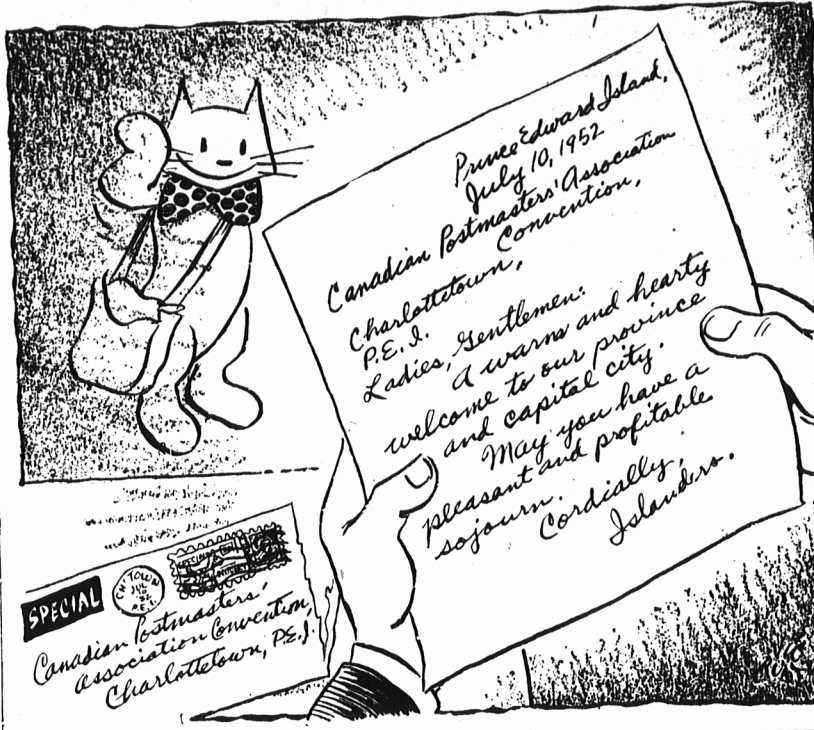 Prince Edward Island,
July 10, 1952
Canadian Postmasters' Association
Convention,
Charlottetown,
P.E.I.
Ladies, Gentlemen:
A warm and hearty
welcome to our province
and capital city.
May you have a
pleasant and profitable
sojourn.
Cordially,
Islanders.
SPECIAL
CH'TOWN
JUL
10
52
P.E.I.
Canadian Postmasters'
Association Convention,
Charlottetown, P.E.I.